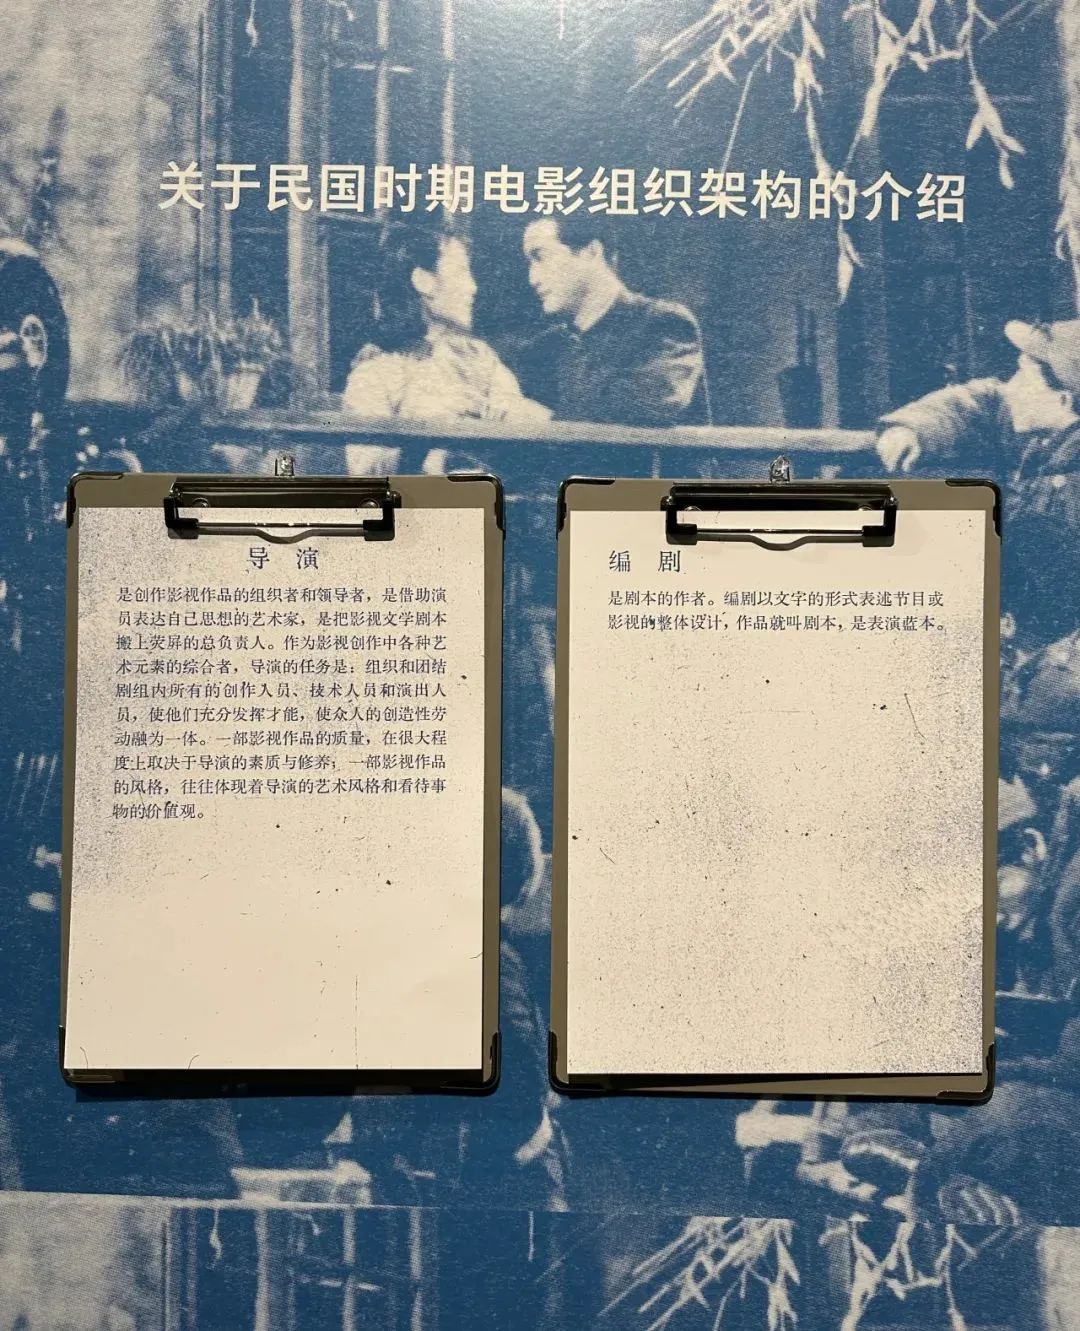 关于民国时期电影组织架构的介绍
导 演
是创作影视作品的组织者和领导者，是借助演
员表达自己思想的艺术家，是把影视文学剧本
搬上荧屏的总负责人。作为影视创作中各种艺
术元素的综合者，导演的任务是：组织和团结
剧组内所有的创作人员、技术人员和演出人
员，使他们充分发挥才能，使众人的创造性劳
动融为一体。一部影视作品的质量，在很大程
度上取决于导演的素质与修养；一部影视作品
的风格，往往体现着导演的艺术风格和看待事
物的价值观。
编 剧
是剧本的作者。编剧以文字的形式表述节目或
影视的整体设计，作品就叫剧本，是表演蓝本。